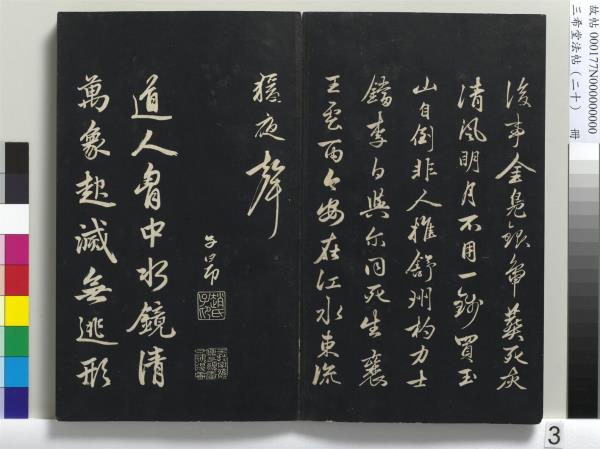 故帖 000177N000000000
三希堂法帖（二十） 冊
後事金鳧銀葬死灰
清風明月不用一錢買玉
山自倒非人推舒州杓力士
鐺李白與爾同死生襄
王雲雨今安在江水東流
猿夜聲
子昂
趙氏子昂
道人胸中水鏡清
萬象起滅無逃形
3